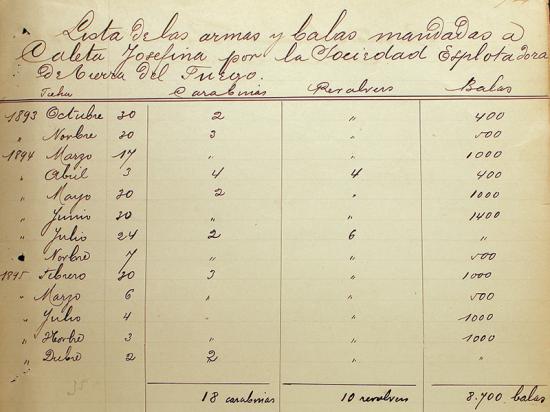 Lista de las armas y balas mandadas a
Caleta Josefina por la Sociedad Esplotadora
De Tierra del Fuego.
Fecha Carabinas Revolvers Balas
1893 Octubre 30 2 " 400
" Novbre 30 3 " 500
1894 Marzo 17 " " 1000
" Abril 3 4 4 400
" Mayo 30 2 " 1000
" Junio 30 " " 1400
" Julio 24 2 6 "
" Novbre 7 " " 500
1895 Febrero 30 3 " 1000
" Marzo 6 " " 500
" Julio 4 " " 1000
" Novbre 3 " " 1000
" Dicbre 2 2 " "
18 carabinas 10 revolvers 8.700 balas